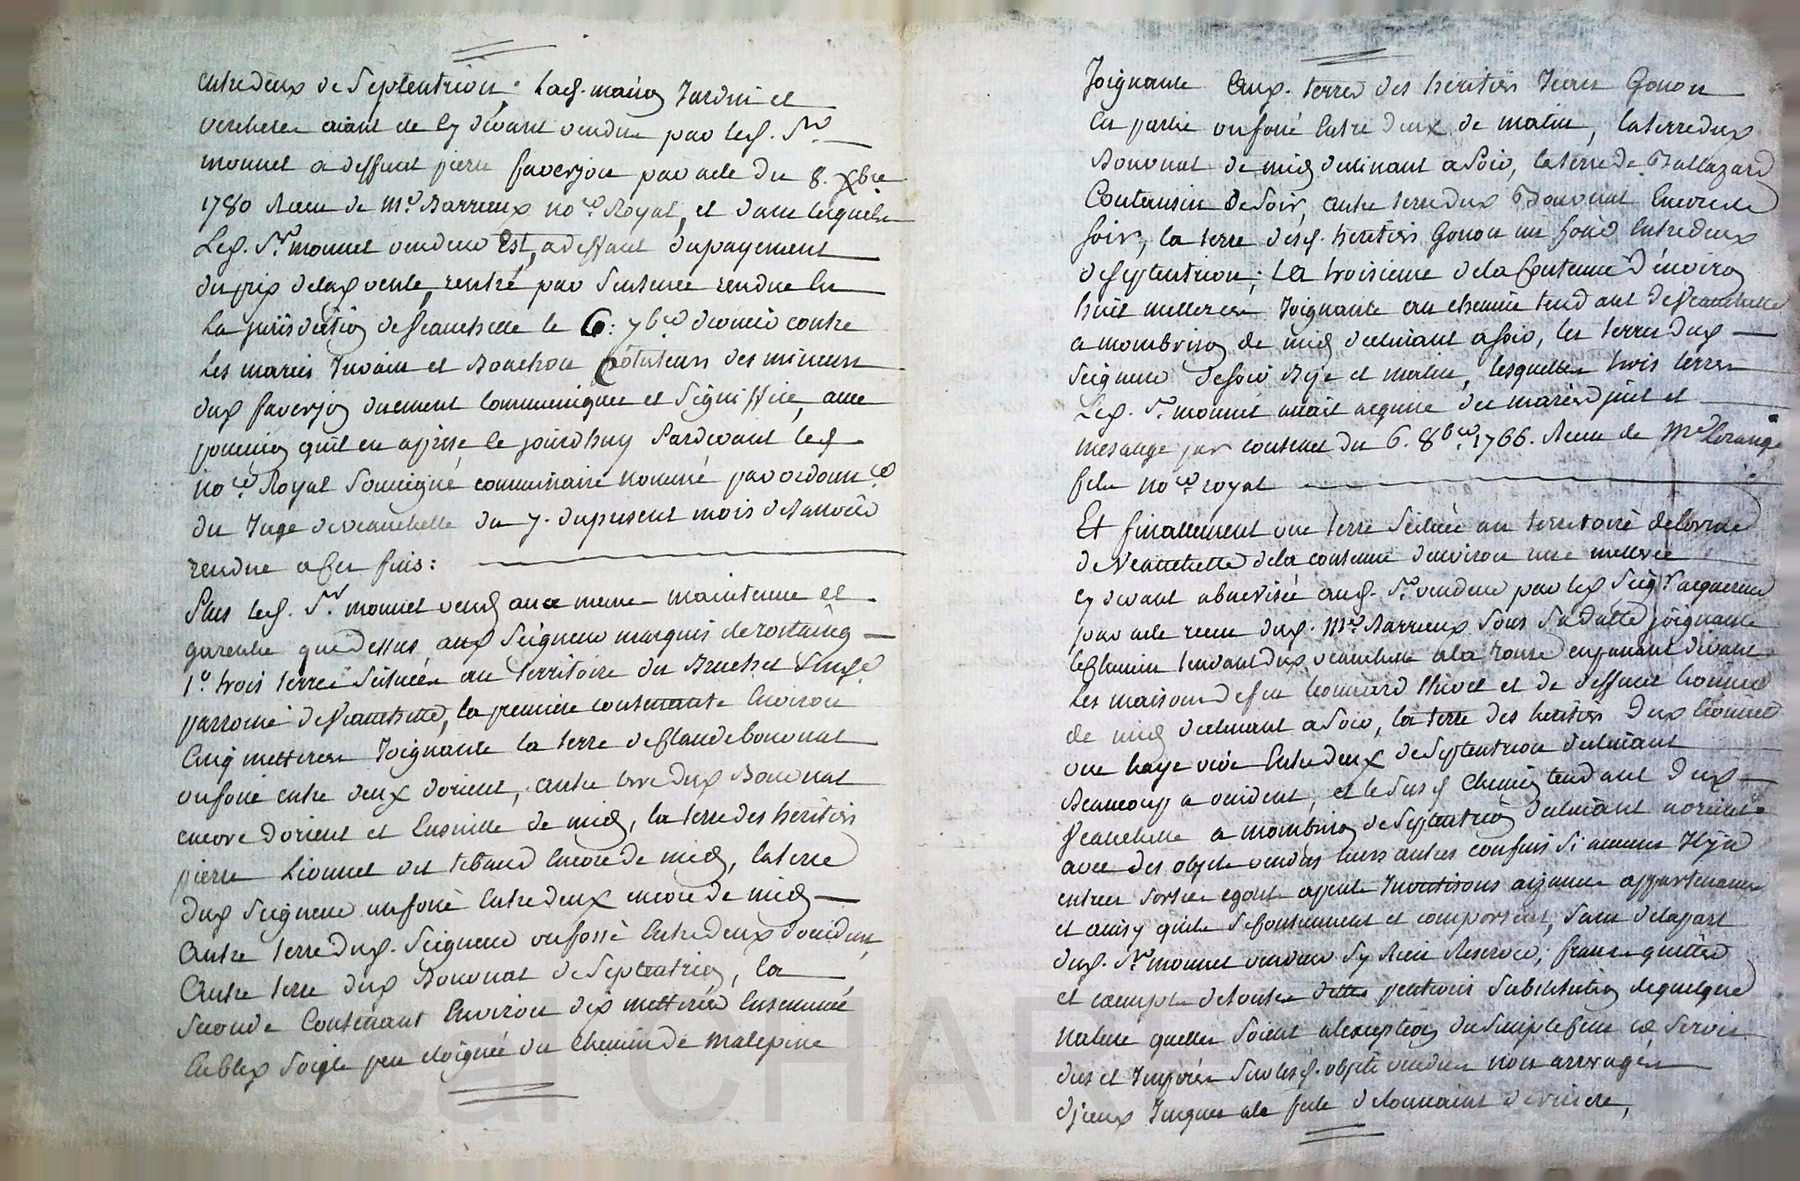 entredeux de Septentrion; Lad. maison Jardin et
verchere aiant été cy devant vendue par led. Sr
monnet a deffunt pierre faverjon par acte du 8. Xbre
1780 Recu de Me Barrieux nore Royal, et dans lesquels
Led. Sr monnet vendeur Est, a deffaut du payement
du prix de lad vente, rentré par Sentence rendue En
La jurisdiction de Veauchette le 6: 7bre dernier contre
Les mariés Juvain et Bouchou tuteurs des mineurs
dud faverjon duement Communiquée et Signiffiée, avec
pocession quil en a prise le jourdhuy Pardevant led
nore Royal Soussigné commissaire nommé par ordonnce
du Juge de Veauchette du 7. du present mois de
rendue a Ces fins:
Plus led. Sr monnet vend avec meme maintenue et
garentie que dessus aud Seigneur marquis de rostaing
1o trois terres Scituées au Territoire du Bruchet
parroisse de Veauchette, la premiere contenante Environ
Cinq metterées Joignante la terre de Claude bouvnat
un fossé entre deux dorient, autre terre dud Bouvnat
encore dorient et Ensuitte de midy, la terre des heritiers
pierre Lionnet dit tibaud Encore de midy, la terre
dud Seigneur un fossé Entredeux encore de midy
Autre terre dud. Seigneur un fossé Entredeux doccident,
Autre terre dud Bouvnat de Septentrion, la
Seconde Contenant Environ dix metterées Ensemencée
En bled Seigle peu eloignée du Chemin de malepine
Joignante Aux. terres des heritiers Jean Gonon
En partie un fossé Entre deux de matin, la terre dud
Bouvnat de midy declinant a Soir, la terre de Baltazard
Coutansin de Soir, autre terre dud Bouvnat Encore de
Soir, la terre desd. heritiers Gonon un fossé Entredeux
de Septentrion; La troisieme de la Contenue d'environ
huit metterées Joignante au chemin tendant de Veauchette
a mombrison de midy declinant a Soir, les terres dud
Seigneur de Soir Bise et matin, lesquelles trois terres
Led. Sr monnet avait acquise des mariés et
mesange par contract du 6. 8bre 1766. Recu de Me
fils nore royal
Et finallement une terre Scituée au territoire de
de Veauchette de la contenue denviron une metterée
cy devant abnevisée aud. Sr vendeur par led Seigr acquereur
par acte recu dud. Me Barrieux Sous Sa datte joignante
le Chemin tendant dud veauchette a la en passant devant
Les maisons de feu Leonnard thivet et de deffunt
de midy declinant a Soir, la terre des heritiers dud
une haye vive Entredeux de Septentrion declinant
Beaucoup a occident, et le Susd Chemin tendant dud
Veauchette a mombrison de Septentrion declinant
avec des objets vendus leurs autres confins Si aucuns Il y a
entrées Sorties egout apents Investisons aizances appartenances
et ainsy quils Se Contiennent et comportent, Sans de la part
dud. Sr monnet vendeur Sy Rien Reserver, francs quittes
et exempts de toutes dettes pentions Substitution de quelque
nature quelles Soient a lexception du Simple Cens et Servis
dus et Imposés Sur lesd. objets vendus non arreragés
d'iceux Jusques a la fete de ,